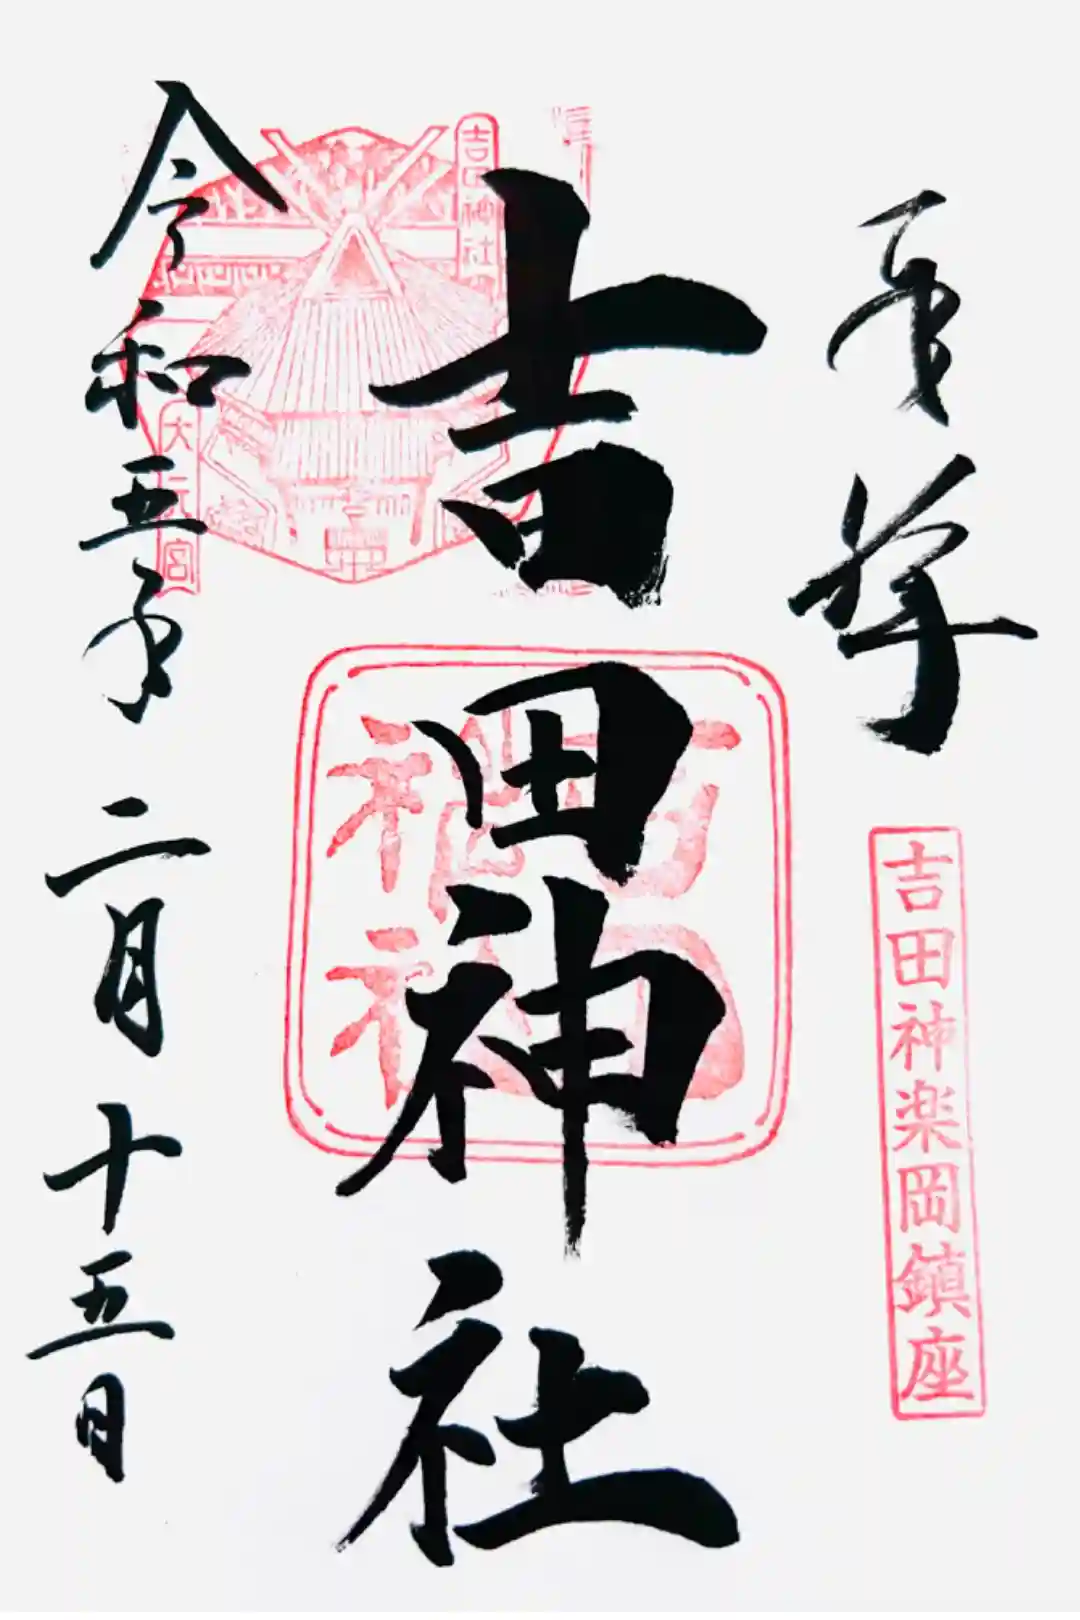 奉拝
吉田神楽岡鎮座
吉田神社
吉田神社
大元宮
令和五年二月十五日